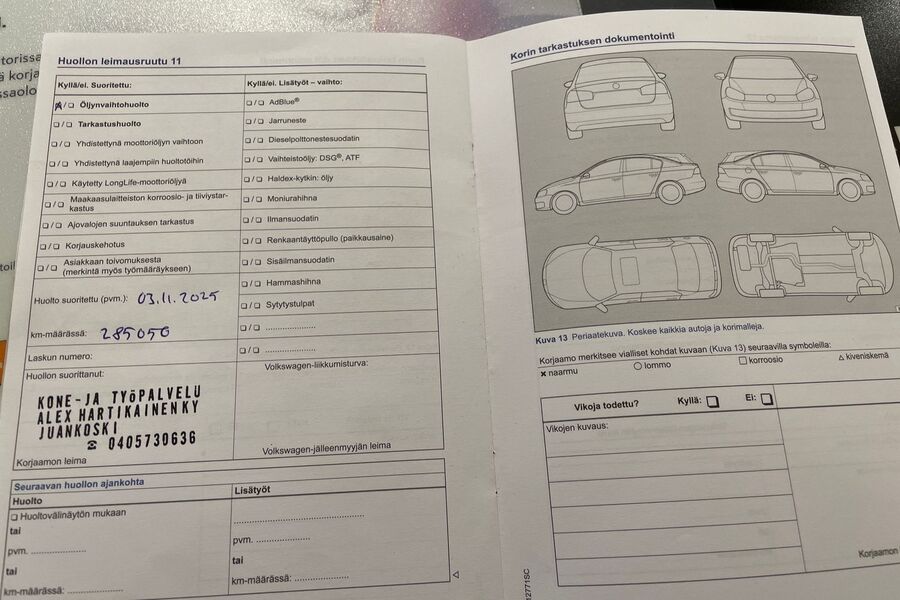 Huollon leimausruutu 11
Kyllä/ei. Suoritettu:
☐ / ☐ Öljynvaihtohuolto
☐ / ☐ Tarkastushuolto
☐ / ☐ Yhdistettynä moottoriöljyn vaihtoon
☐ / ☐ Yhdistettynä laajempiin huoltotöihin
☐ / ☐ Käytetty LongLife-moottoriöljyä
☐ / ☐ Maakaasulaitteiston korroosio- ja tiiviystar-
kastus
☐ / ☐ Ajovalojen suuntauksen tarkastus
☐ / ☐ Korjauskehotus
☐ / ☐ Asiakkaan toivomuksesta
(merkintä myös työmääräykseen)
Huolto suoritettu (pvm.): 03.11.2025
km-määrässä: 285056
Laskun numero:
Huollon suorittanut:
KONE-JA TYÖPALVELU
ALEX HARTIKAINEN KY
JUANKOSKI
☎ 0405730636
Korjaamon leima
Kyllä/ei. Lisätyöt – vaihto:
☐ / ☐ AdBlue®
☐ / ☐ Jarruneste
☐ / ☐ Dieselpolttonestesuodatin
☐ / ☐ Vaihteistoöljy: DSG®, ATF
☐ / ☐ Haldex-kytkin: öljy
☐ / ☐ Moniurahihna
☐ / ☐ Ilmansuodatin
☐ / ☐ Renkaantäyttöpullo (paikkausaine)
☐ / ☐ Sisäilmansuodatin
☐ / ☐ Hammashihna
☐ / ☐ Sytytystulpat
☐ / ☐ ....................
☐ / ☐ ....................
Volkswagen-liikkumisturva:
Volkswagen-jälleenmyyjän leima
Seuraavan huollon ajankohta
Huolto
☐ Huoltovälinäytön mukaan
tai
pvm. ......................
tai
km-määrässä: ......................
Lisätyöt
..........................................
pvm. ..................
tai
km-määrässä: ..................
Korin tarkastuksen dokumentointi
Kuva 13 Periaatekuva. Koskee kaikkia autoja ja korimalleja.
Korjaamo merkitsee vialliset kohdat kuvaan (Kuva 13) seuraavilla symboleilla:
× naarmu ○ lommo □ korroosio △ kiveniskemä
Vikoja todettu? Kyllä: ☐ Ei: ☐
Vikojen kuvaus:
Korjaamon
12771SC